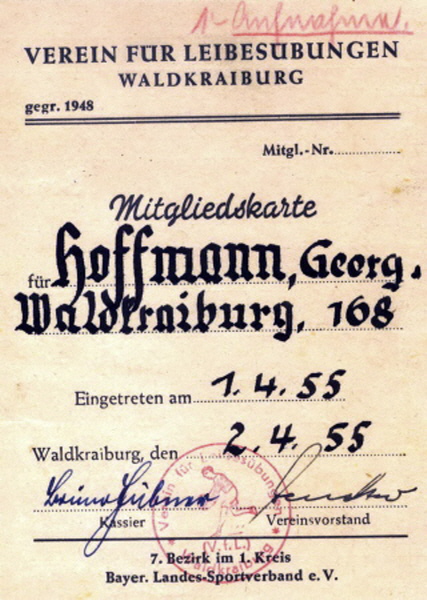 1. Aufnahme.
VEREIN FÜR LEIBESÜBUNGEN
WALDKRAIBURG
gegr. 1948
Mitgl.-Nr.
Mitgliedskarte
für Hoffmann, Georg.
Waldkraiburg, 168
Eingetreten am 1.4.55
Waldkraiburg, den 2.4.55
Bruno Hübner
Kassier Vereinsvorstand
Verein für Leibesübungen
(V.f.L.)
Waldkraiburg
7. Bezirk im 1. Kreis
Bayer. Landes-Sportverband e. V.